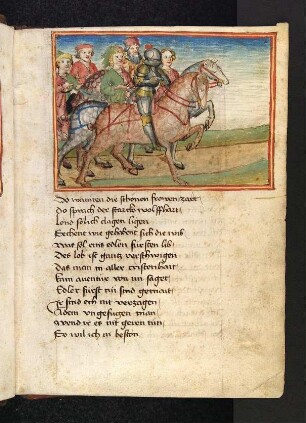 Do wainten die schonen frowen zart
Do sprach der starck wolfhart
Lond solich clagen ligen
Rechent wie gehabent sich die wib
Was sol eins edlen fursten lib
Des lob ist gantz verschwigen
Das man in aller cristenhait
Kain auentur von im saget
Edler furst nu sind gemait
Ir sind och nit verzagen
Adem vngefugen man
Wend ir es nit geren tun
Er wil ich in beston